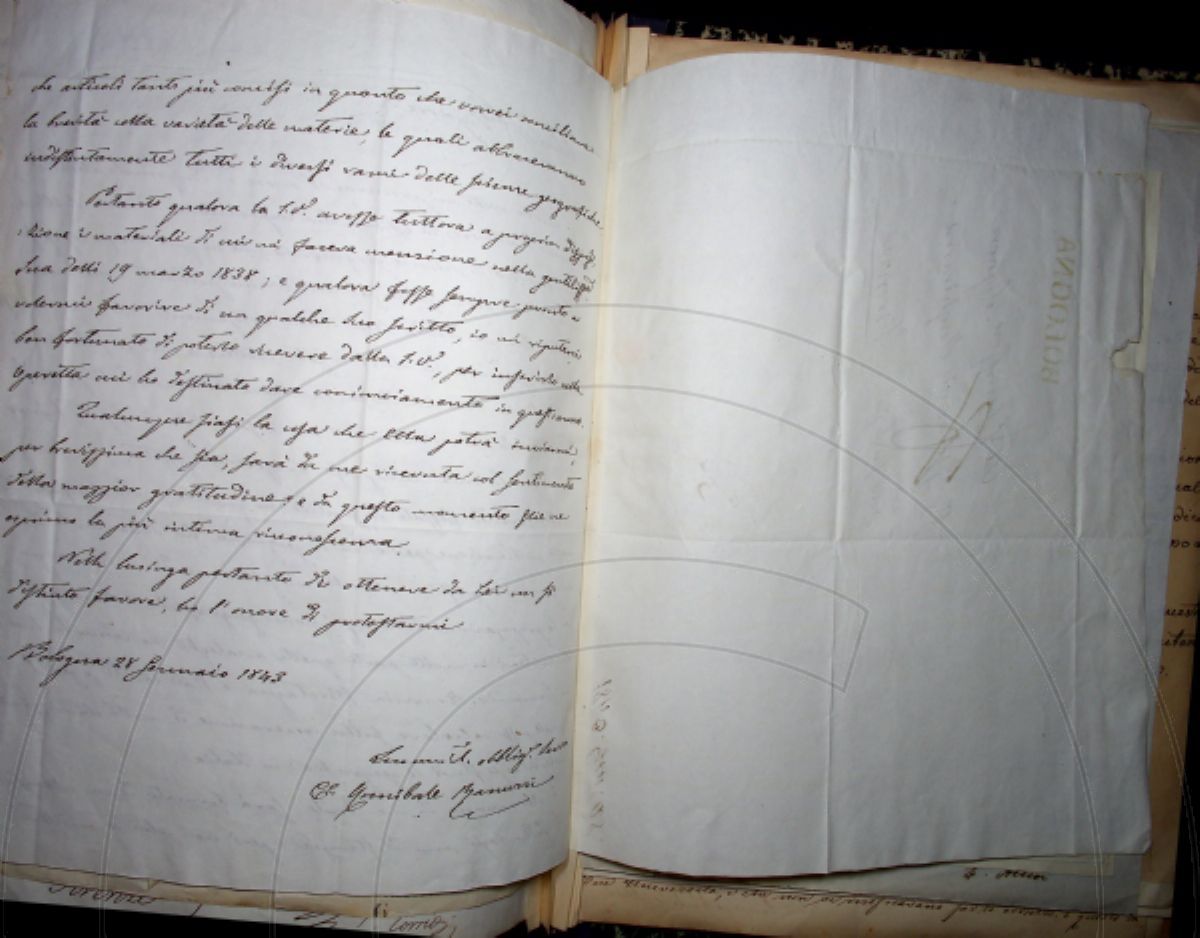 che articoli tanto più concisi in quanto che vorrei conciliare
la brevità colla varietà delle materie, le quali abbracceranno
indistintamente tutti i diversi rami delle scienze geografiche.
Pertanto qualora la S.V. avesse tuttora a propria disposi-
zione i materiali di cui mi faceva menzione nella gentilissa
sua delli 19 marzo 1838; e qualora fosse sempre pronto a
volermi favorire di un qualche suo scritto, io mi riputerei
ben fortunato di poterlo ricevere dalla S.V., per inserirlo nella
operetta cui ho destinato dare cominciamento in quest'anno.
Qualunque siasi la cosa che Ella potrà inviarmi,
per brevissima che sia, sarà da me ricevuta col sentimento
della maggior gratitudine, e da questo momento gliene
esprimo la più intensa riconoscenza.
Nella lusinga pertanto di ottenere da Lei un sì
distinto favore, ho l'onore di protestarmi
Bologna 28 Gennaio 1843
obblig.
Annibale Ranuzzi
BOLOGNA